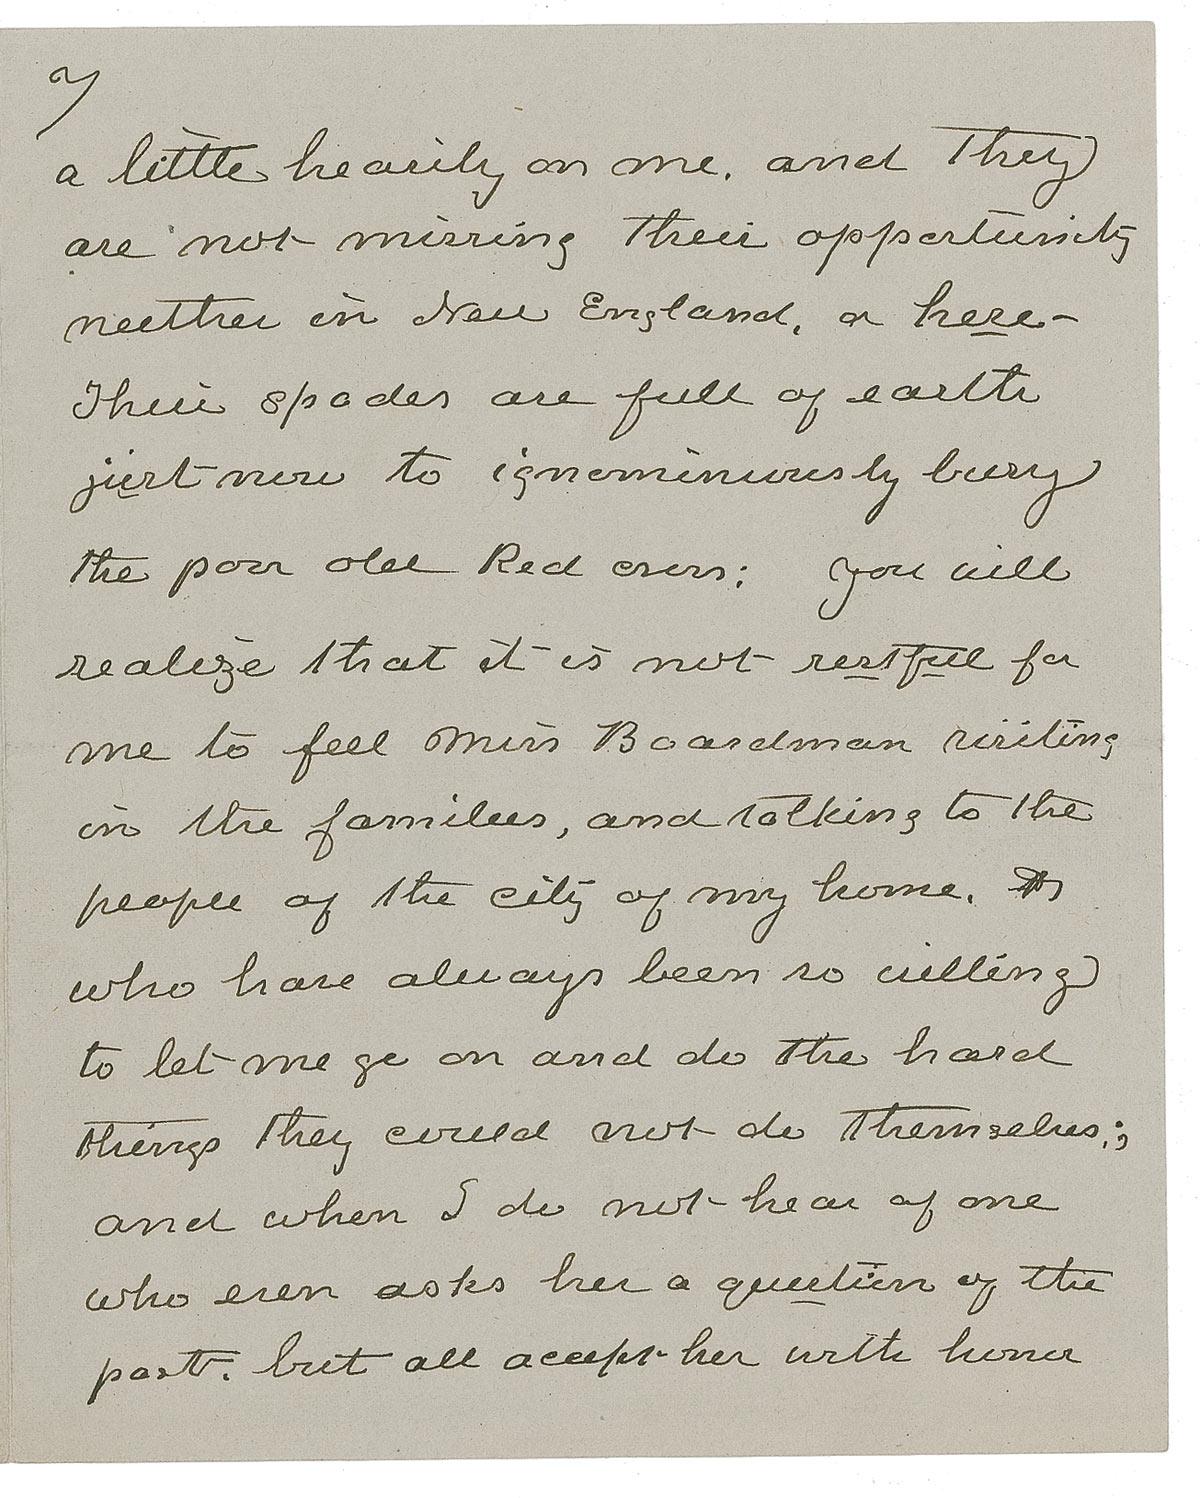 7
a little heavily on me. and They
are not missing their opportunity
neither in New England, or here -
Their spades are full of earth
just now to ignominiously bury
the poor old Red cross: You will
realize that it is not restful for
me to feel Miss Boardman visiting
in the families, and talking to the
people of the city of my home.
who have always been so willing
to let me go on and do the hard
things they could not do themselves;
and when I do not hear of one
who even asks her a question of the
past. but all accept her with honor